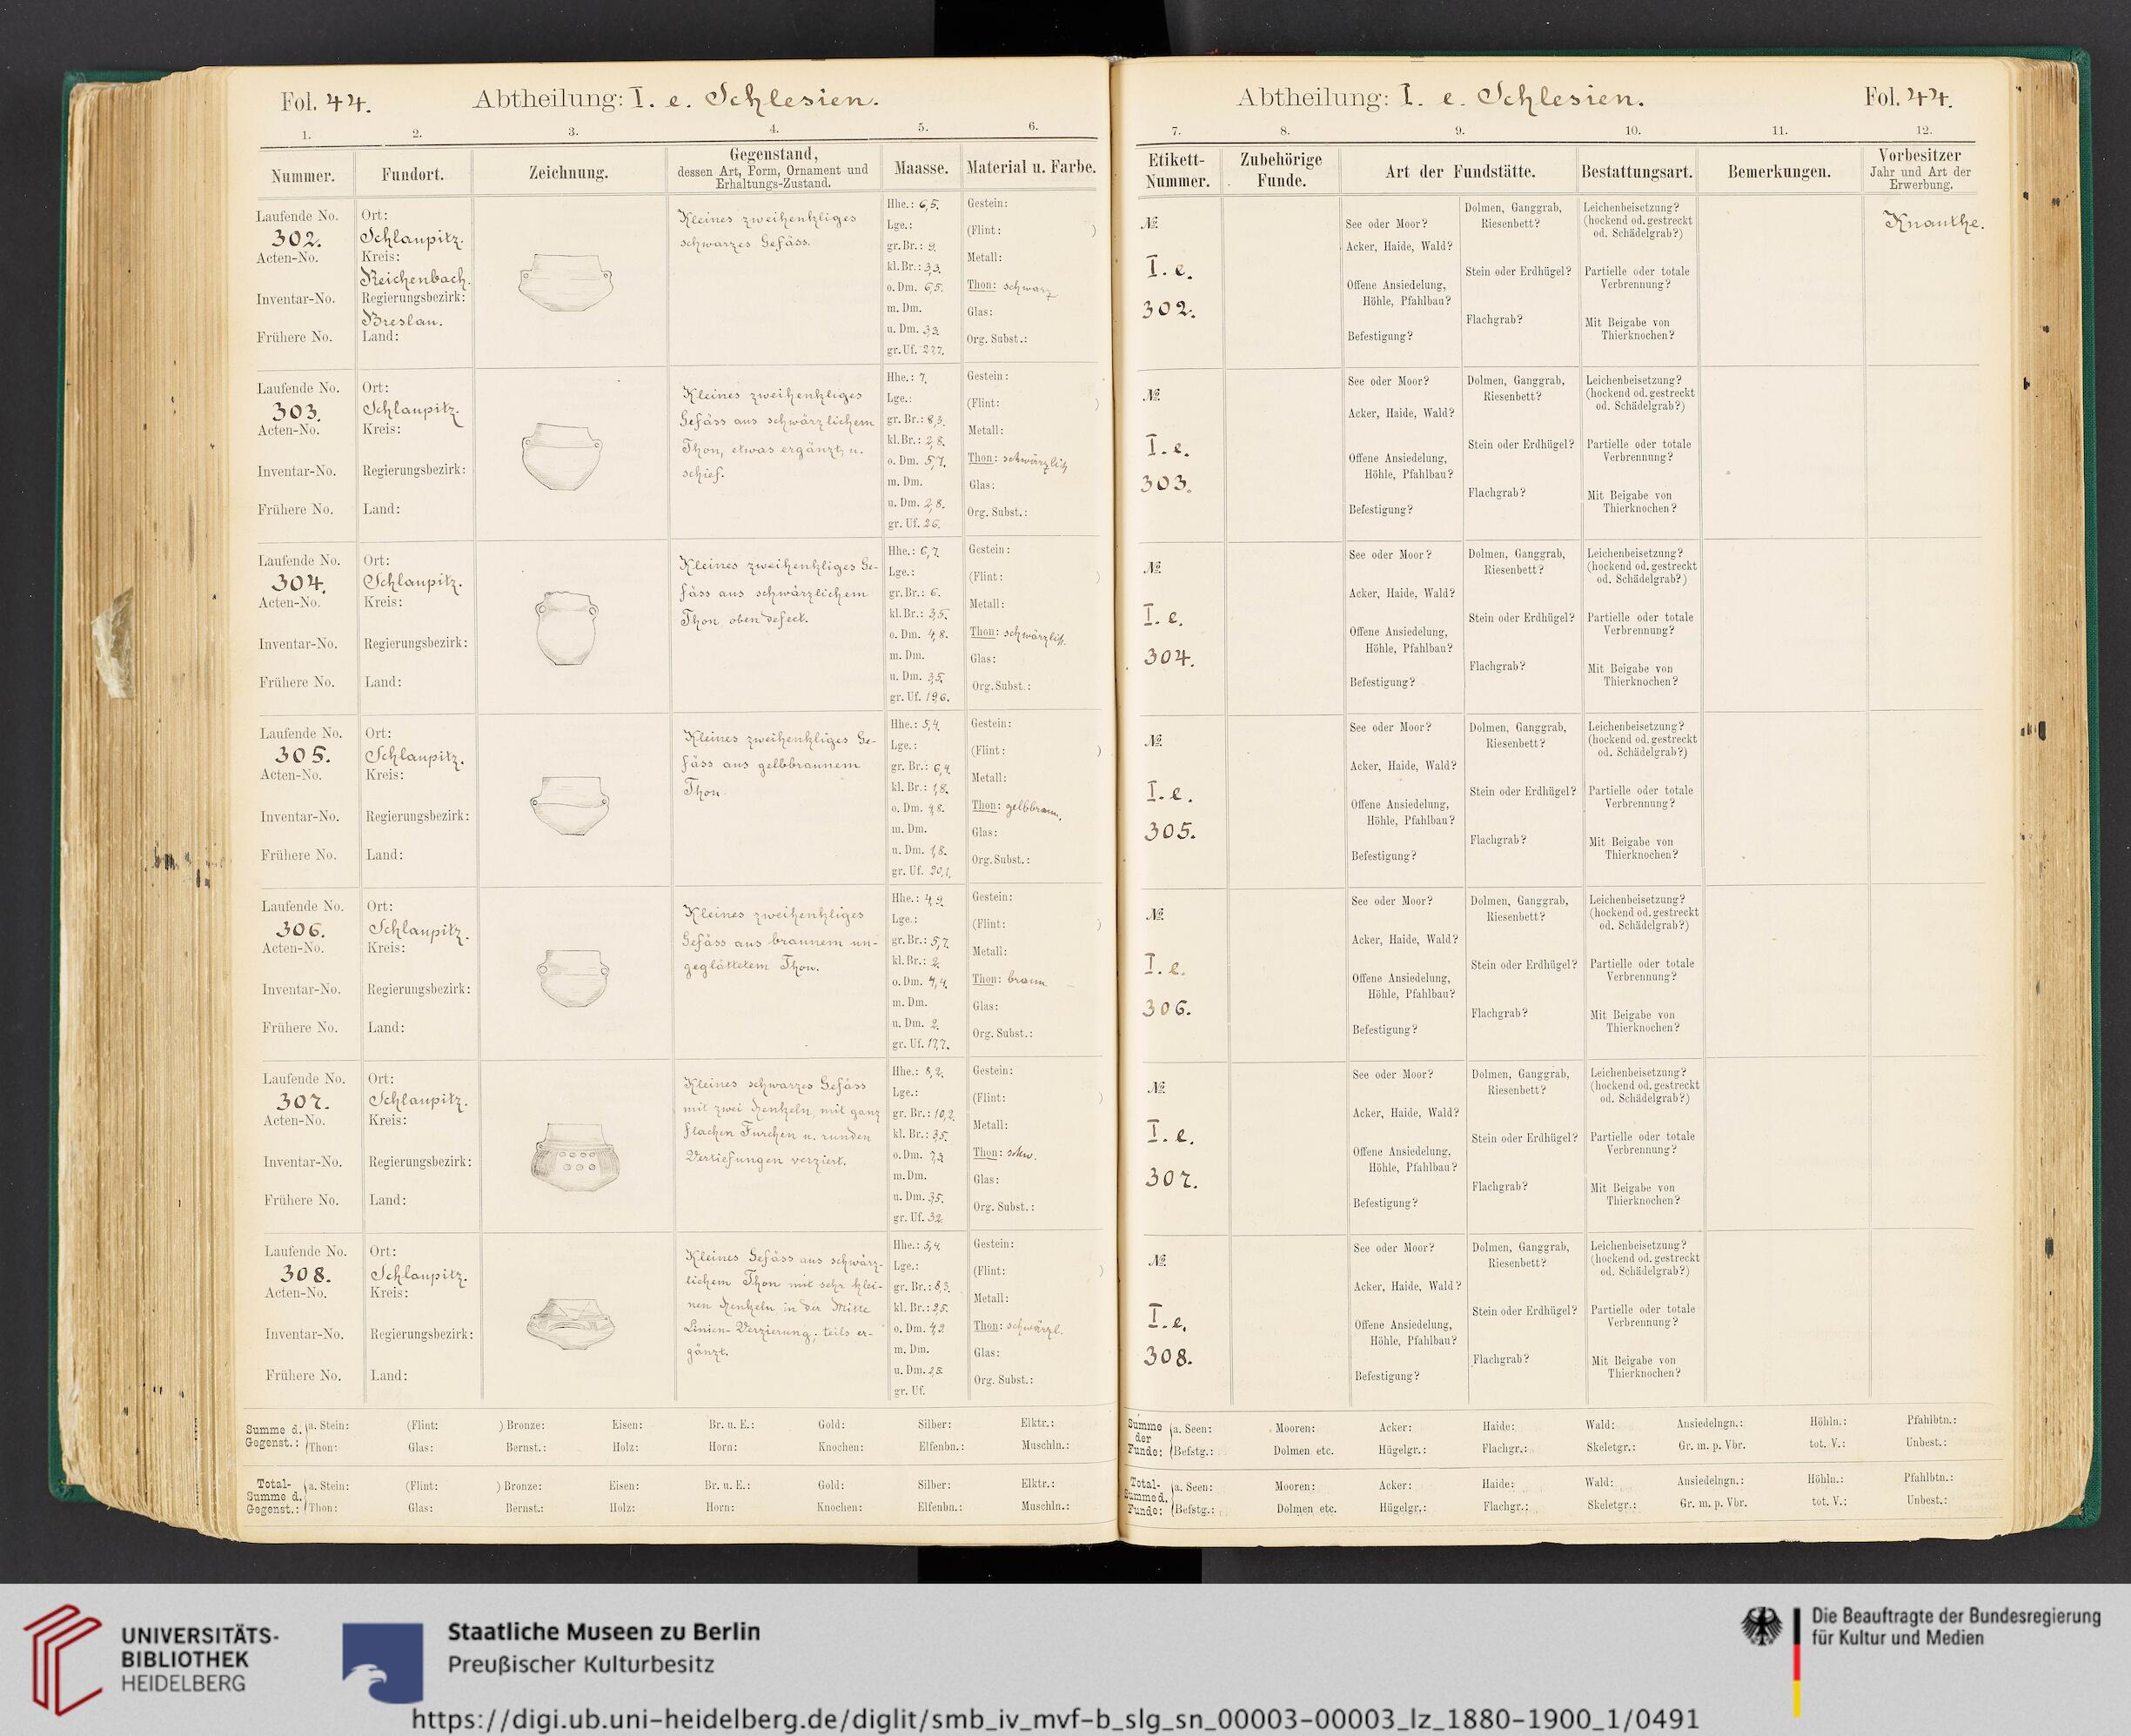 Fol. 44.
Abtheilung: I. e. Schlesien.
1. 2. 3. 4. 5. 6.
Nummer.
Fundort.
Zeichnung.
Gegenstand,
dessen Art, Form, Ornament und
Erhaltungs-Zustand.
Maasse.
Material u. Farbe.
Laufende No.
302.
Acten-No.
Inventar-No.
Frühere No.
Ort:
Schlaupitz.
Kreis:
Reichenbach.
Regierungsbezirk:
Breslau.
Land:
Kleines zweihenkliges
schwarzes Gefäss.
Hhe.: 6,5.
Lge.:
gr. Br.: 9.
kl. Br.: 3,3.
o. Dm. 6,5.
m. Dm.
u. Dm. 3,3.
gr. Uf. 27,7.
Gestein:
(Flint: )
Metall:
Thon: schwarz
Glas:
Org. Subst.:
Laufende No.
303.
Acten-No.
Inventar-No.
Frühere No.
Ort:
Schlaupitz.
Kreis:
Regierungsbezirk:
Land:
Kleines zweihenkliges
Gefäss aus schwärzlichem
Thon, etwas ergänzt, u.
schief.
Hhe.: 7.
Lge.:
gr. Br.: 8,3.
kl. Br.: 2,8.
o. Dm. 5,7.
m. Dm.
u. Dm. 2,8.
gr. Uf. 26.
Gestein:
(Flint: )
Metall:
Thon: schwärzlich
Glas:
Org. Subst.:
Laufende No.
304.
Acten-No.
Inventar-No.
Frühere No.
Ort:
Schlaupitz.
Kreis:
Regierungsbezirk:
Land:
Kleines zweihenkliges Ge-
fäss aus schwärzlichem
Thon oben defect.
Hhe.: 6,7.
Lge.:
gr. Br.: 6.
kl. Br.: 3,5.
o. Dm. 4,8.
m. Dm.
u. Dm. 3,5.
gr. Uf. 19,6.
Gestein:
(Flint: )
Metall:
Thon: schwärzlich.
Glas:
Org. Subst.:
Laufende No.
305.
Acten-No.
Inventar-No.
Frühere No.
Ort:
Schlaupitz.
Kreis:
Regierungsbezirk:
Land:
Kleines zweihenkliges Ge-
fäss aus gelbbraunem
Thon.
Hhe.: 5,4.
Lge.:
gr. Br.: 6,4.
kl. Br.: 1,8.
o. Dm. 4,8.
m. Dm.
u. Dm. 1,8.
gr. Uf. 20,1.
Gestein:
(Flint: )
Metall:
Thon: gelbbraun.
Glas:
Org. Subst.:
Laufende No.
306.
Acten-No.
Inventar-No.
Frühere No.
Ort:
Schlaupitz.
Kreis:
Regierungsbezirk:
Land:
Kleines zweihenkliges
Gefäss aus braunem un-
geglättetem Thon.
Hhe.: 4,9.
Lge.:
gr. Br.: 5,7.
kl. Br.: 2.
o. Dm. 4,4.
m. Dm.
u. Dm. 2.
gr. Uf. 17,7.
Gestein:
(Flint: )
Metall:
Thon: braun
Glas:
Org. Subst.:
Laufende No.
307.
Acten-No.
Inventar-No.
Frühere No.
Ort:
Schlaupitz.
Kreis:
Regierungsbezirk:
Land:
Kleines schwarzes Gefäss
mit zwei Henkeln, mit ganz
flachen Furchen u. runden
Vertiefungen verziert.
Hhe.: 8,2.
Lge.:
gr. Br.: 10,2.
kl. Br.: 3,5.
o. Dm. 7,3
m. Dm.
u. Dm. 3,5.
gr. Uf. 32.
Gestein:
(Flint: )
Metall:
Thon: schw.
Glas:
Org. Subst.:
Laufende No.
308.
Acten-No.
Inventar-No.
Frühere No.
Ort:
Schlaupitz.
Kreis:
Regierungsbezirk:
Land:
Kleines Gefäss aus schwärz-
lichem Thon mit sehr klei-
nen Henkeln, in der Mitte
Linien-Verzierung; teils er-
gänzt.
Hhe.: 5,4.
Lge.:
gr. Br.: 8,3.
kl. Br.: 2,5.
o. Dm. 4,2.
m. Dm.
u. Dm. 2,5.
gr. Uf.
Gestein:
(Flint: )
Metall:
Thon: schwärzl.
Glas:
Org. Subst.:
Summe d. Gegenst.: a. Stein: (Flint: ) Bronze: Eisen: Br. u. E.: Gold: Silber: Elktr.:
Thon: Glas: Bernst.: Holz: Horn: Knochen: Elfenbn.: Muschln.:
Total-Summe d. Gegenst.: a. Stein: (Flint: ) Bronze: Eisen: Br. u. E.: Gold: Silber: Elktr.:
Thon: Glas: Bernst.: Holz: Horn: Knochen: Elfenbn.: Muschln.:
Abtheilung: I. e. Schlesien.
Fol. 44.
7. 8. 9. 10. 11. 12.
Etikett-
Nummer.
Zubehörige
Funde.
Art der Fundstätte.
Bestattungsart.
Bemerkungen.
Vorbesitzer
Jahr und Art der
Erwerbung.
№
I. e.
302.
See oder Moor?
Acker, Haide, Wald?
Offene Ansiedelung,
Höhle, Pfahlbau?
Befestigung?
Dolmen, Ganggrab,
Riesenbett?
Stein oder Erdhügel?
Flachgrab?
Leichenbeisetzung?
(hockend od. gestreckt
od. Schädelgrab?)
Partielle oder totale
Verbrennung?
Mit Beigabe von
Thierknochen?
Knauthe.
№
I. e.
303.
See oder Moor?
Acker, Haide, Wald?
Offene Ansiedelung,
Höhle, Pfahlbau?
Befestigung?
Dolmen, Ganggrab,
Riesenbett?
Stein oder Erdhügel?
Flachgrab?
Leichenbeisetzung?
(hockend od. gestreckt
od. Schädelgrab?)
Partielle oder totale
Verbrennung?
Mit Beigabe von
Thierknochen?
№
I. e.
304.
See oder Moor?
Acker, Haide, Wald?
Offene Ansiedelung,
Höhle, Pfahlbau?
Befestigung?
Dolmen, Ganggrab,
Riesenbett?
Stein oder Erdhügel?
Flachgrab?
Leichenbeisetzung?
(hockend od. gestreckt
od. Schädelgrab?)
Partielle oder totale
Verbrennung?
Mit Beigabe von
Thierknochen?
№
I. e.
305.
See oder Moor?
Acker, Haide, Wald?
Offene Ansiedelung,
Höhle, Pfahlbau?
Befestigung?
Dolmen, Ganggrab,
Riesenbett?
Stein oder Erdhügel?
Flachgrab?
Leichenbeisetzung?
(hockend od. gestreckt
od. Schädelgrab?)
Partielle oder totale
Verbrennung?
Mit Beigabe von
Thierknochen?
№
I. e.
306.
See oder Moor?
Acker, Haide, Wald?
Offene Ansiedelung,
Höhle, Pfahlbau?
Befestigung?
Dolmen, Ganggrab,
Riesenbett?
Stein oder Erdhügel?
Flachgrab?
Leichenbeisetzung?
(hockend od. gestreckt
od. Schädelgrab?)
Partielle oder totale
Verbrennung?
Mit Beigabe von
Thierknochen?
№
I. e.
307.
See oder Moor?
Acker, Haide, Wald?
Offene Ansiedelung,
Höhle, Pfahlbau?
Befestigung?
Dolmen, Ganggrab,
Riesenbett?
Stein oder Erdhügel?
Flachgrab?
Leichenbeisetzung?
(hockend od. gestreckt
od. Schädelgrab?)
Partielle oder totale
Verbrennung?
Mit Beigabe von
Thierknochen?
№
I. e.
308.
See oder Moor?
Acker, Haide, Wald?
Offene Ansiedelung,
Höhle, Pfahlbau?
Befestigung?
Dolmen, Ganggrab,
Riesenbett?
Stein oder Erdhügel?
Flachgrab?
Leichenbeisetzung?
(hockend od. gestreckt
od. Schädelgrab?)
Partielle oder totale
Verbrennung?
Mit Beigabe von
Thierknochen?
Summe der Funde: a. Seen: Mooren: Acker: Haide: Wald: Ansiedelngn.: Höhln.: Pfahlbtn.:
Befstg.: Dolmen etc. Hügelgr.: Flachgr.: Skeletgr.: Gr. m. p. Vbr. tot. V.: Unbest.:
Total-Summe d. Funde: a. Seen: Mooren: Acker: Haide: Wald: Ansiedelngn.: Höhln.: Pfahlbtn.:
Befstg.: Dolmen etc. Hügelgr.: Flachgr.: Skeletgr.: Gr. m. p. Vbr. tot. V.: Unbest.:
UNIVERSITÄTS-
BIBLIOTHEK
HEIDELBERG
Staatliche Museen zu Berlin
Preußischer Kulturbesitz
Die Beauftragte der Bundesregierung
für Kultur und Medien
https://digi.ub.uni-heidelberg.de/diglit/smb_iv_mvf-b_slg_sn_00003-00003_lz_1880-1900_1/0491